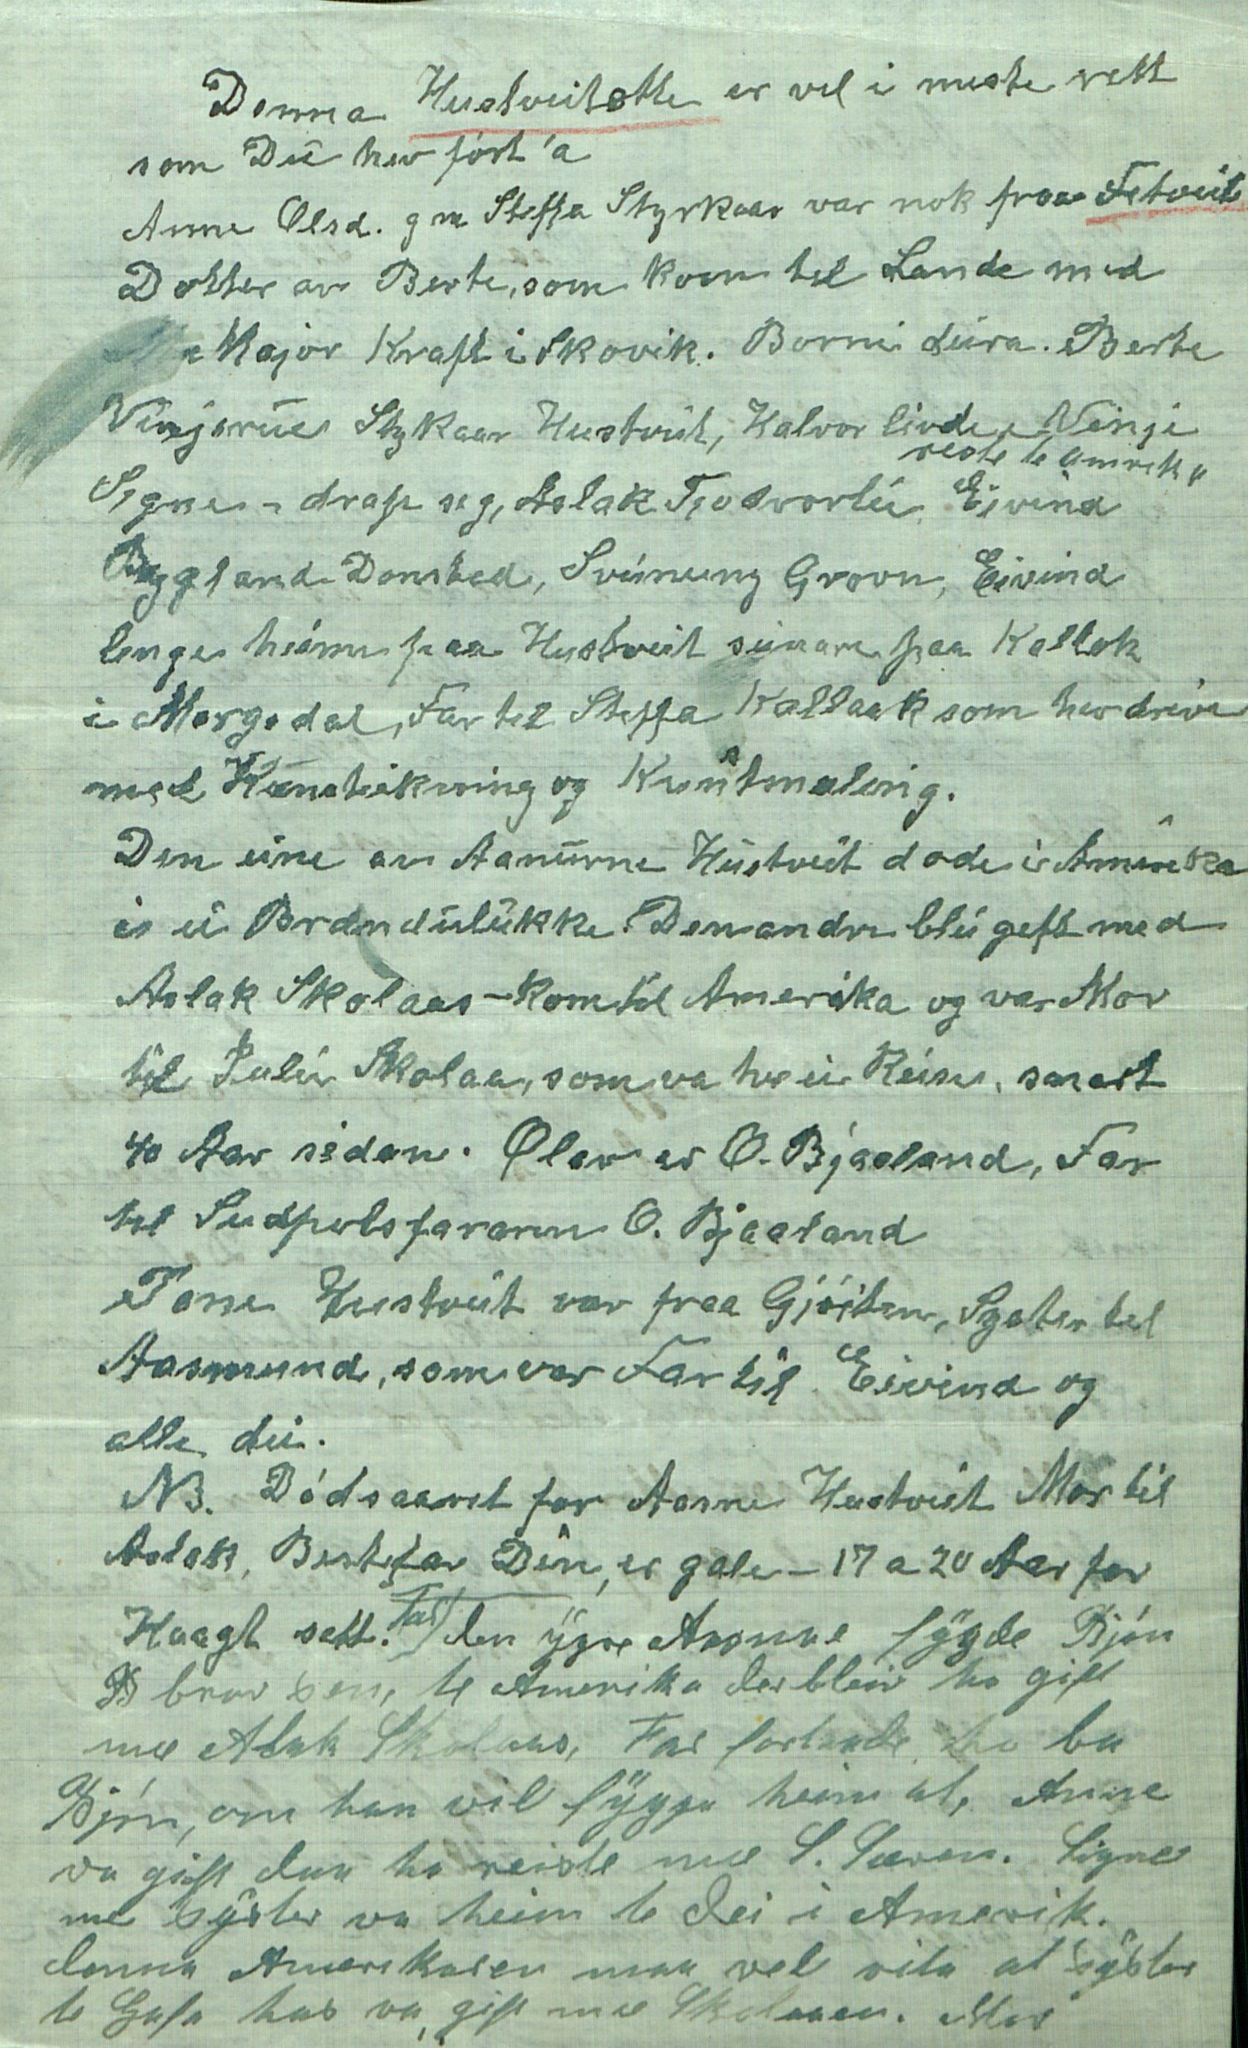 Denna Hustveitætte er vel i meste rett
som Du hev ført 'a
Anne Olsd. g m Steffa Styrkaar var nok fraa Fetveit
Dotter av Berte, som kom til Lande med
Major Kraft i Skovik. Borni deira. Berte
Vinjerui Stykaar Hustveit, Halvor livde i Vinje
reiste te Amerika
Signe - drap seg, Aslak Tjodvorlii Eivind
Byggland Donsted, Sveinung Grovn, Eivind
lenge heime paa Hustveit seinare paa Kallak
i Morgedal, Far til Steffa Kallaak som hev drive
med og Kunstmaling.
Den eine av Aanurne Hustveit døde i Amerika
i ei Brandulukke. Den andre blei gift med
Aslak Skolaas - kom til Amerika og var Mor
til Juliu Skolaa, som va her ei Reise, snart
40 Aar sidan. Olav er O. Bjaaland, Far
til Sudpolsfararen O. Bjaaland
Tone Hustveit var fraa Gjøiten, Syster til
Aasmund, som var Far til Eivind og
alle dei.
NB. Dødsaaret for Aasne Hustveit Mor til
Aslak, Bestefar Din, er gale - 17 a 20 Aar for
Haagt sett. Far den yngre Aasne fygde Bjøn
bror sen, te Amerika der bleiv ho gift
me Aslak Skolaas, Far fortalde ho ba
Bjøn, om han vil fyggja heim at, Anne
va gift daa ho reiste me S. Signe
me syster va heim te dei i Amerik.
denna Amerikaren maa vel vita at syster
te Gofa has va gift me Skolaaen. Mor